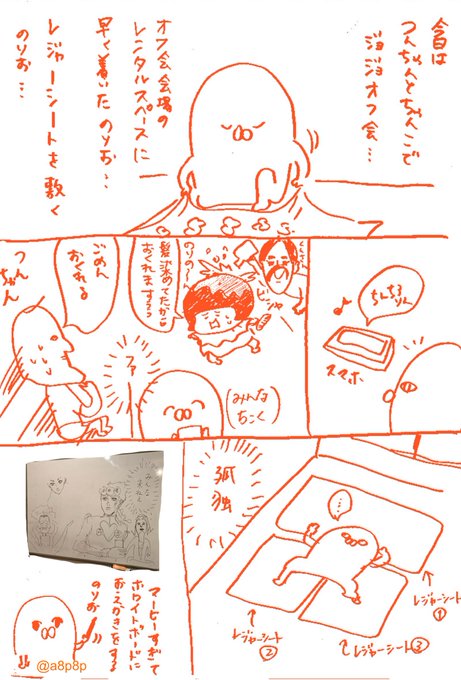 今日は
つんちゃんとちゃんこで
ジョジョオフ会…
オフ会会場の
レンタルスペースに
早く着いたのりお…
レジャーシートを敷く
のりお…
ちんちろりん
スマホ
のりの〜
髪染めてたから
おくれまするっ
ビシャ
ごめん
おくれる
つんちゃん
(みんなちこく)
…
レジャーシート①
レジャーシート②
レジャーシート③
孤独
みんな
まだ
ホワイトボードに
おえかきをする
のりお
@a8p8p